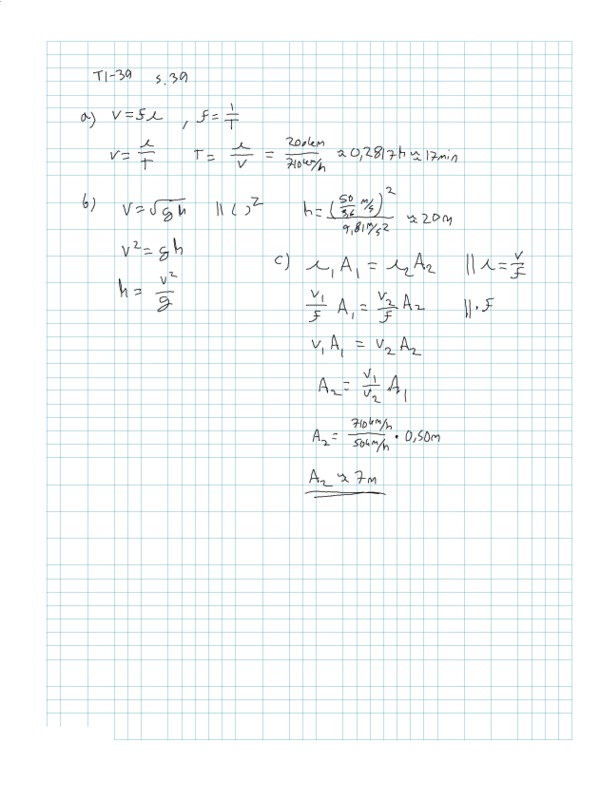 T1-39 s.39
a) v=fλ , f=1/T
v=λ/T T=λ/v = 200km/710km/h ≈ 0,2817h ≈ 17min
b) v=√gh ||()² h=(50/3,6 m/s)²/9,81m/s² ≈ 20m
v²=gh
h=v²/g
c) λ₁A₁=λ₂A₂ ||λ=v/f
v₁/f A₁=v₂/f A₂ ||·f
v₁A₁=v₂A₂
A₂=v₁/v₂·A₁
A₂=710km/h/50km/h·0,50m
A₂≈7m